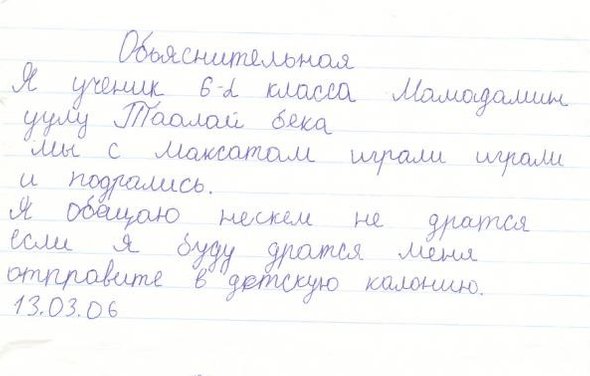 Обьяснительная
Я ученик 6-д класса Мамадамин
уулу Таалай бека
мы с максатам играли играли
и подрались.
Я обещаю нескем не дратся
если я буду дратся меня
отпправите в детскую калонию.
13.03.06